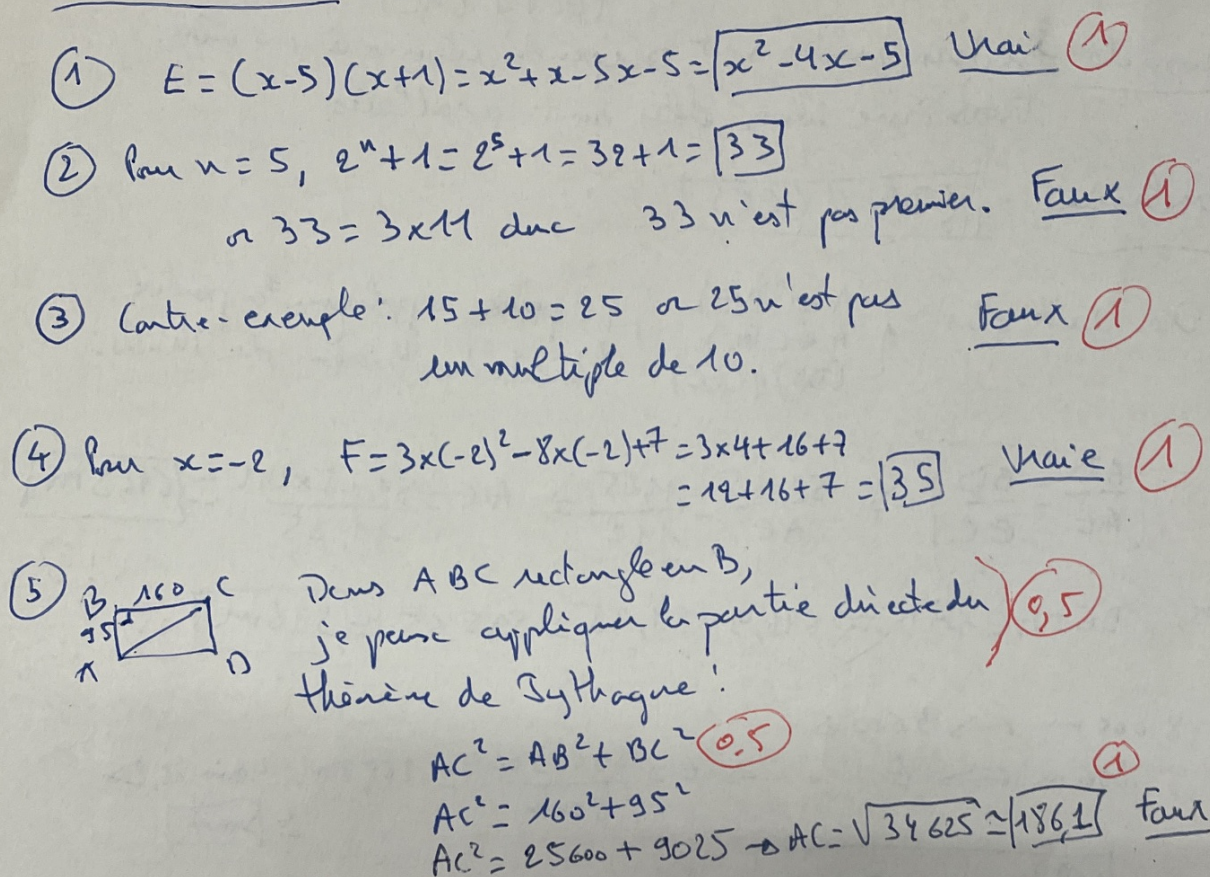 ① E = (x-5)(x+1) = x²+x-5x-5 = x²-4x-5 Vrai 1
② Pour n = 5, 2ⁿ+1 = 2⁵+1 = 32+1 = 33
or 33 = 3x11 donc 33 n'est pas premier. Faux 1
③ Contre-exemple : 15+10 = 25 or 25 n'est pas Faux 1
un multiple de 10.
④ Pour x=-2, F = 3x(-2)²-8x(-2)+7 = 3x4+16+7 Vraie 1
= 12+16+7 = 35
⑤ B 160 C
95
A D
Dans ABC rectangle en B,
je peux appliquer la partie directe du 0,5
théorème de Pythagore :
AC² = AB² + BC² 0,5
AC² = 160² + 95²
AC² = 25600 + 9025 → AC = √34625 ≃ 186,1 1 Faux